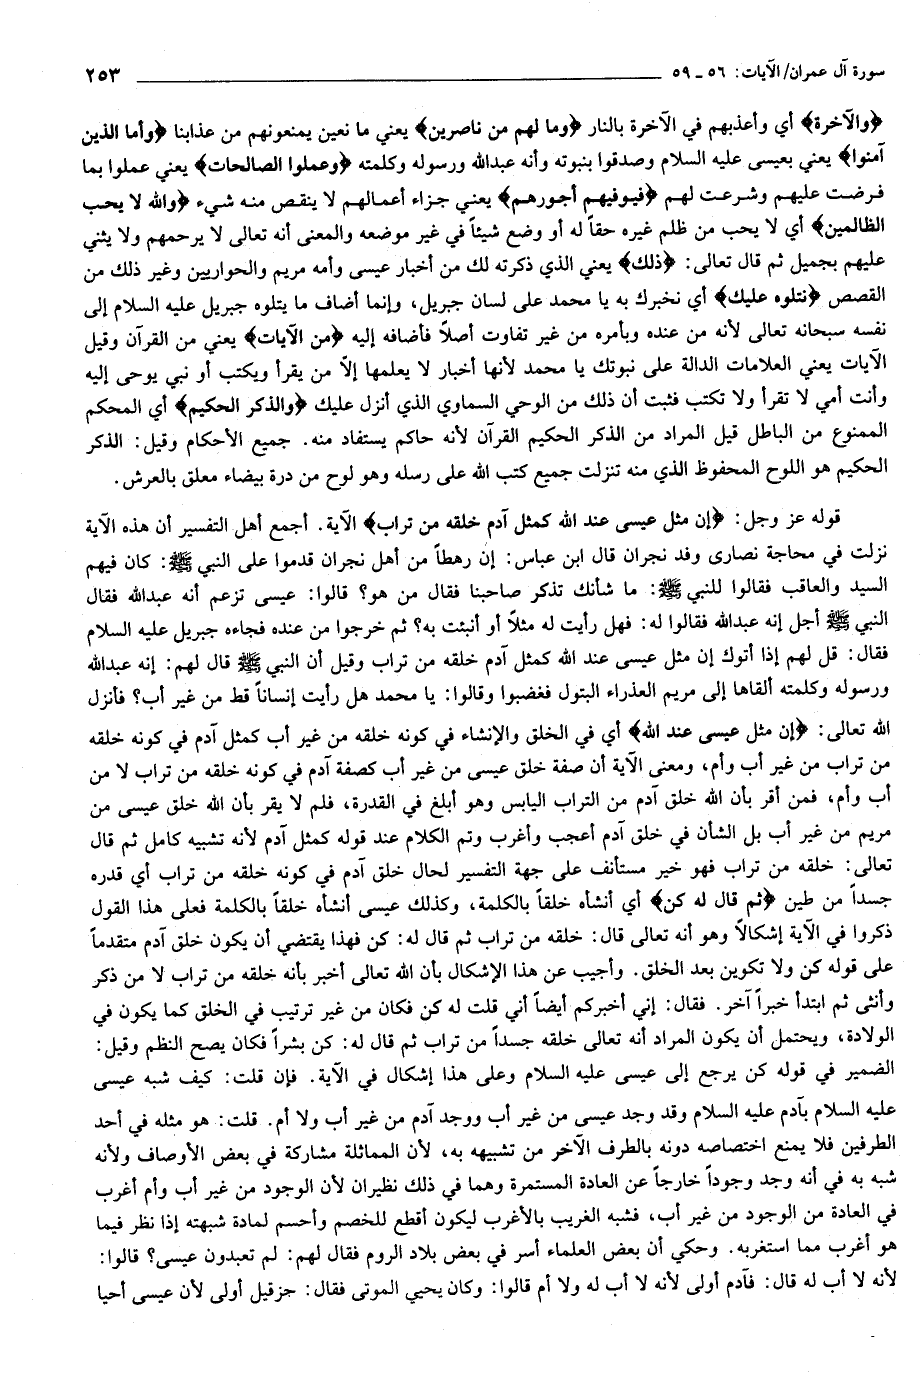 سورة آل عمران/ الآيات: ٥٦ ـ ٥٩ ٢٥٣
﴿والآخرة﴾ أي وأعذبهم في الآخرة بالنار ﴿وما لهم من ناصرين﴾ يعني ما نعين يمنعونهم من عذابنا ﴿وأما الذين
آمنوا﴾ يعني بعيسى عليه السلام وصدقوا بنبوته وأنه عبدالله ورسوله وكلمته ﴿وعملوا الصالحات﴾ يعني عملوا بما
فرضت عليهم وشرعت لهم ﴿فيوفيهم أجورهم﴾ يعني جزاء أعمالهم لا ينقص منه شيء ﴿والله لا يحب
الظالمين﴾ أي لا يحب من ظلم غيره حقاً له أو وضع شيئاً في غير موضعه والمعنى أنه تعالى لا يرحمهم ولا يثني
عليهم بجميل ثم قال تعالى: ﴿ذلك﴾ يعني الذي ذكرته لك من أخبار عيسى وأمه مريم والحواريين وغير ذلك من
القصص ﴿نتلوه عليك﴾ أي نخبرك به يا محمد على لسان جبريل، وإنما أضاف ما يتلوه جبريل عليه السلام إلى
نفسه سبحانه تعالى لأنه من عنده وبأمره من غير تفاوت أصلاً فأضافه إليه ﴿من الآيات﴾ يعني من القرآن وقيل
الآيات يعني العلامات الدالة على نبوتك يا محمد لأنها أخبار لا يعلمها إلاّ من يقرأ ويكتب أو نبي يوحى إليه
وأنت أمي لا تقرأ ولا تكتب فثبت أن ذلك من الوحي السماوي الذي أنزل عليك ﴿والذكر الحكيم﴾ أي المحكم
الممنوع من الباطل قيل المراد من الذكر الحكيم القرآن لأنه حاكم يستفاد منه. جميع الأحكام وقيل: الذكر
الحكيم هو اللوح المحفوظ الذي منه تنزلت جميع كتب الله على رسله وهو لوح من درة بيضاء معلق بالعرش.
قوله عز وجل: ﴿إن مثل عيسى عند الله كمثل آدم خلقه من تراب﴾ الآية. أجمع أهل التفسير أن هذه الآية
نزلت في محاجة نصارى وفد نجران قال ابن عباس: إن رهطاً من أهل نجران قدموا على النبي ﷺ: كان فيهم
السيد والعاقب فقالوا للنبي ﷺ: ما شأنك تذكر صاحبنا فقال من هو؟ قالوا: عيسى تزعم أنه عبدالله فقال
النبي ﷺ أجل إنه عبدالله فقالوا له: فهل رأيت له مثلاً أو أنبئت به؟ ثم خرجوا من عنده فجاءه جبريل عليه السلام
فقال: قل لهم إذا أتوك إن مثل عيسى عند الله كمثل آدم خلقه من تراب وقيل أن النبي ﷺ قال لهم: إنه عبدالله
ورسوله وكلمته ألقاها إلى مريم العذراء البتول فغضبوا وقالوا: يا محمد هل رأيت إنساناً قط من غير أب؟ فأنزل
الله تعالى: ﴿إن مثل عيسى عند الله﴾ أي في الخلق والإنشاء في كونه خلقه من غير أب كمثل آدم في كونه خلقه
من تراب من غير أب وأم، ومعنى الآية أن صفة خلق عيسى من غير أب كصفة آدم في كونه خلقه من تراب لا من
أب وأم، فمن أقر بأن الله خلق آدم من التراب اليابس وهو أبلغ في القدرة، فلم لا يقر بأن الله خلق عيسى من
مريم من غير أب بل الشأن في خلق آدم أعجب وأغرب وتم الكلام عند قوله كمثل آدم لأنه تشبيه كامل ثم قال
تعالى: خلقه من تراب فهو خير مستأنف على جهة التفسير لحال خلق آدم في كونه خلقه من تراب أي قدره
جسداً من طين ﴿ثم قال له كن﴾ أي أنشأه خلقاً بالكلمة، وكذلك عيسى أنشأه خلقاً بالكلمة فعلى هذا القول
ذكروا في الآية إشكالاً وهو أنه تعالى قال: خلقه من تراب ثم قال له: كن فهذا يقتضي أن يكون خلق آدم متقدماً
على قوله كن ولا تكوين بعد الخلق. وأجيب عن هذا الإشكال بأن الله تعالى أخبر بأنه خلقه من تراب لا من ذكر
وأنثى ثم ابتدأ خبراً آخر. فقال: إني أخبركم أيضاً أني قلت له كن فكان من غير ترتيب في الخلق كما يكون في
الولادة، ويحتمل أن يكون المراد أنه تعالى خلقه جسداً من تراب ثم قال له: كن بشراً فكان يصح النظم وقيل:
الضمير في قوله كن يرجع إلى عيسى عليه السلام وعلى هذا إشكال في الآية. فإن قلت: كيف شبه عيسى
عليه السلام بآدم عليه السلام وقد وجد عيسى من غير أب ووجد آدم من غير أب ولا أم. قلت: هو مثله في أحد
الطرفين فلا يمنع اختصاصه دونه بالطرف الآخر من تشبيهه به، لأن المماثلة مشاركة في بعض الأوصاف ولأنه
شبه به في أنه وجد وجوداً خارجاً عن العادة المستمرة وهما في ذلك نظيران لأن الوجود من غير أب وأم أغرب
في العادة من الوجود من غير أب، فشبه الغريب بالأغرب ليكون أقطع للخصم وأحسم لمادة شبهته إذا نظر فيما
هو أغرب مما استغربه. وحكي أن بعض العلماء أسر في بعض بلاد الروم فقال لهم: لم تعبدون عيسى؟ قالوا:
لأنه لا أب له قال: فآدم أولى لأنه لا أب له ولا أم قالوا: وكان يحيي الموتى فقال: حزقيل أولى لأن عيسى أحيا